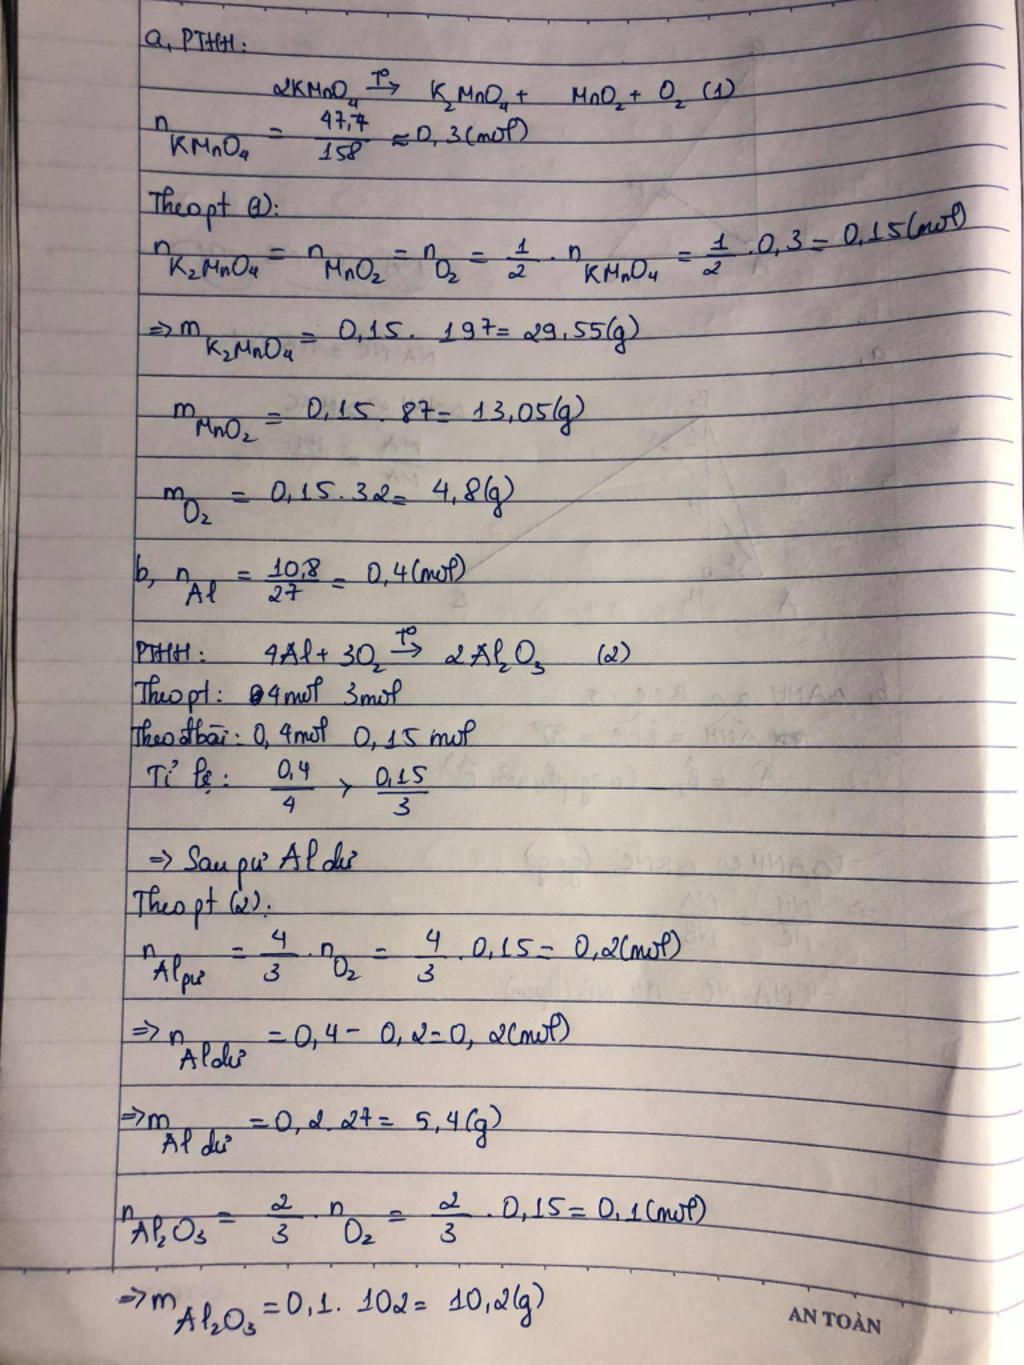 a, PTHH:
2KMnO₄ →(T°) K₂MnO₄ + MnO₂ + O₂ (1)
n KMnO₄ = 47,7/158 ≈ 0,3(mol)
Theo pt (1):
n K₂MnO₄ = n MnO₂ = n O₂ = 1/2 . n KMnO₄ = 1/2 . 0,3 = 0,15(mol)
=> m K₂MnO₄ = 0,15. 197= 29,55(g)
m MnO₂ = 0,15. 87= 13,05(g)
m O₂ = 0,15.32= 4,8(g)
b, n Al = 10,8/27 = 0,4(mol)
PTHH: 4Al + 3O₂ →(T°) 2Al₂O₃ (2)
Theo pt: 4mol 3mol
Theo đbài: 0,4mol 0,15 mol
Tỉ lệ: 0,4/4 > 0,15/3
=> Sau pư Al dư
Theo pt (2):
n Al pư = 4/3 . n O₂ = 4/3 . 0,15= 0,2(mol)
=> n Al dư = 0,4 - 0,2=0,2(mol)
=> m Al dư = 0,2.27= 5,4(g)
n Al₂O₃ = 2/3 . n O₂ = 2/3 . 0,15= 0,1(mol)
=> m Al₂O₃ = 0,1. 102= 10,2(g)
AN TOÀN